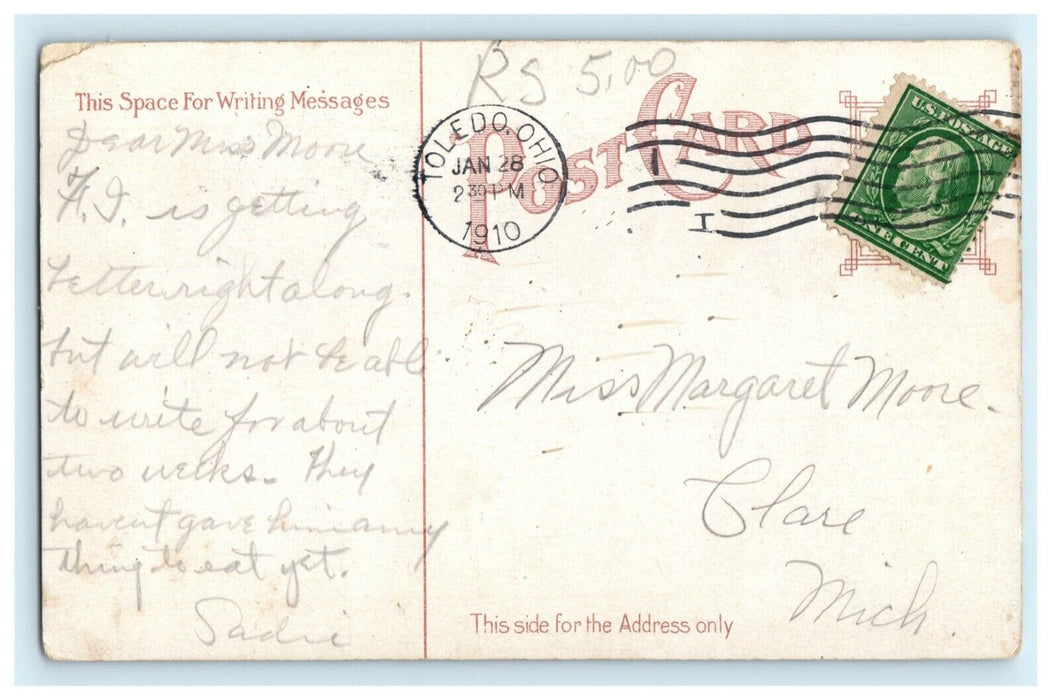 This Space For Writing Messages
Dear Miss Moore
H.I. is getting
better right along.
but will not be able
to write for about
two weeks. They
havent gave him any
thing to eat yet.
Sadie
RS 5.00
POST CARD
TOLEDO, OHIO
JAN 28
2 30 PM
1910
I
I
U.S. POSTAGE
ONE CENT
Miss Margaret Moore.
Clare
Mich.
This side for the Address only